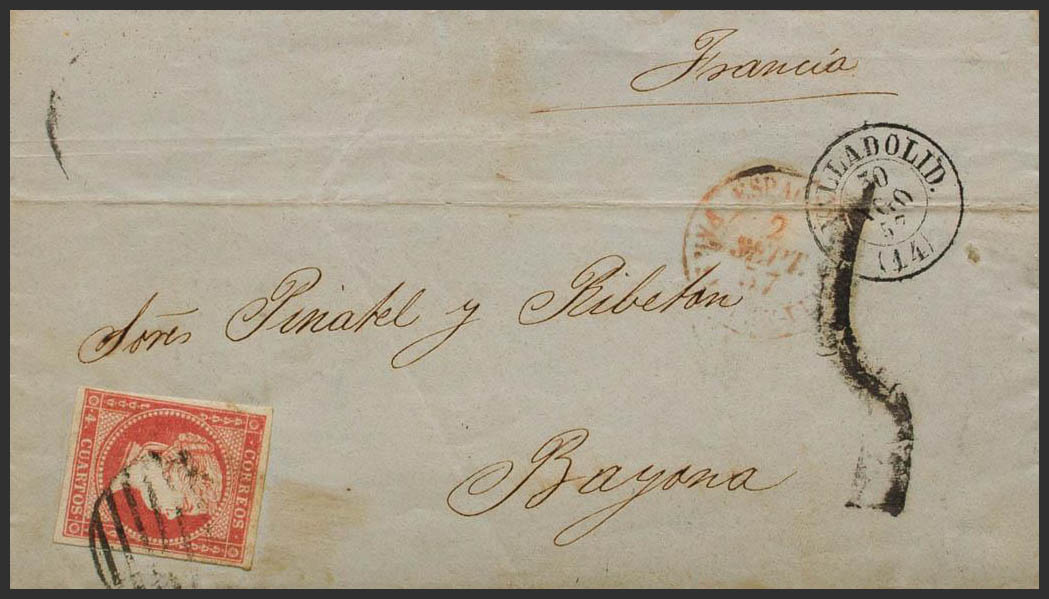 Francia
VALLADOLID.
30
AGO
57
(14)
ESPAG
2
SEPT.
57
Sores Pinatel y Ribeton
Bayona
4 CUARTOS.
CORREOS.